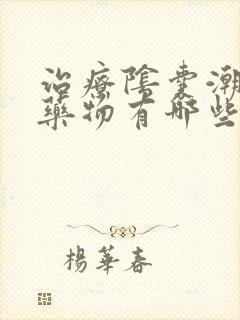 治療陰囊潮
藥物有哪些
楊華春